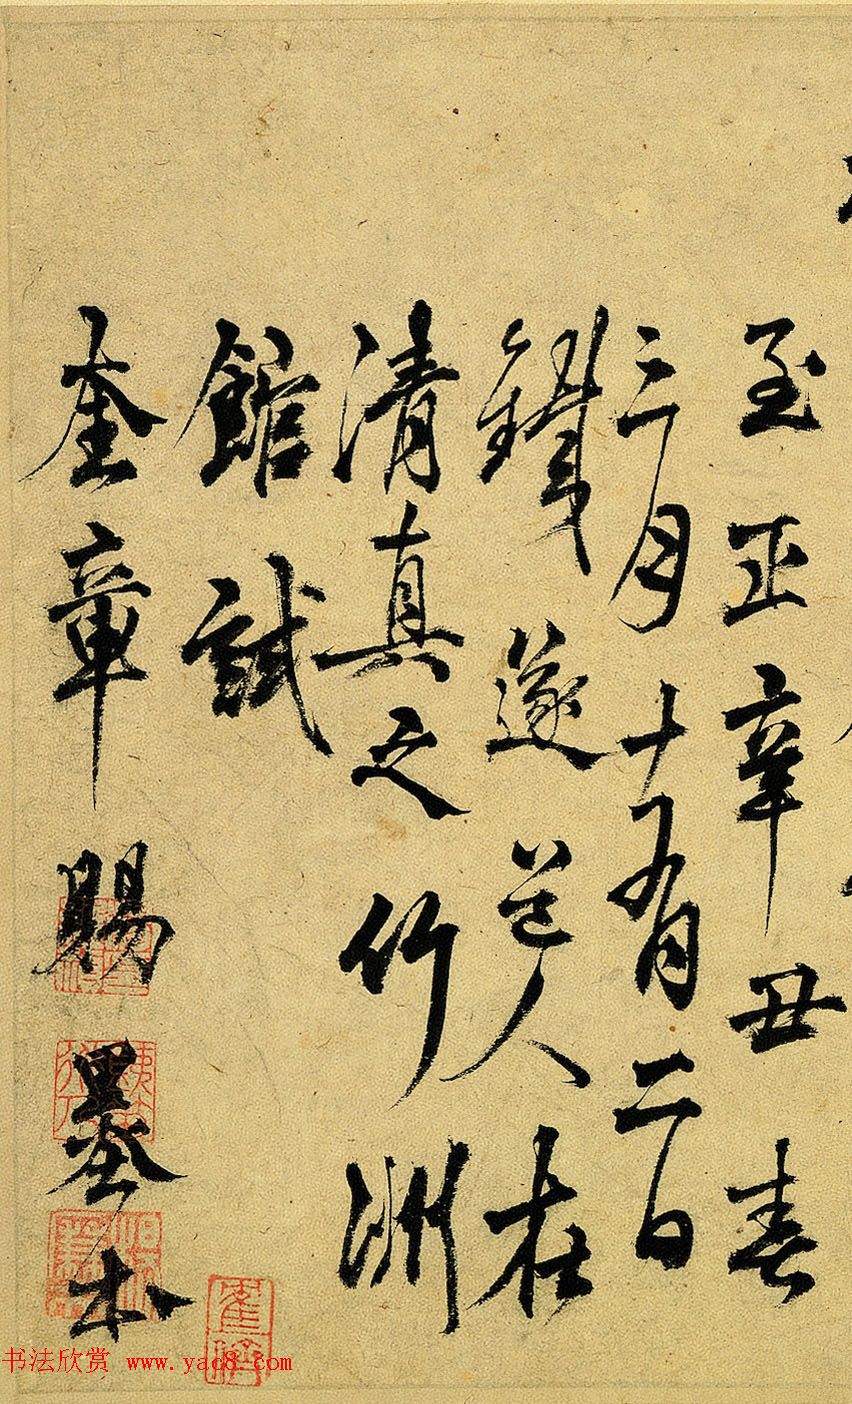 至正辛丑春
三月十有二日
鐵邃道人在
清真之竹洲
館試
奎章賜墨本
书法欣赏 www.yac8.com